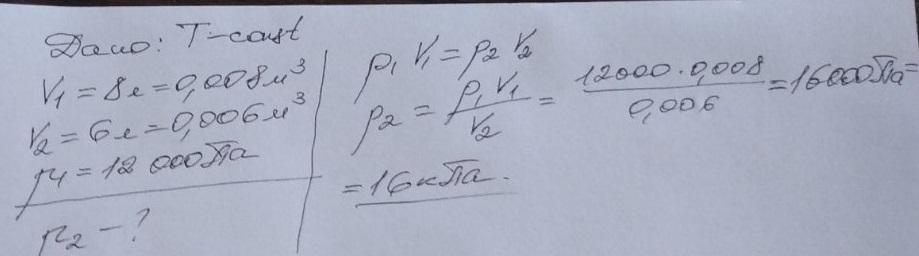 Дано: T-const
V₁ = 8л = 0,008м³
V₂ = 6л = 0,006м³
p₁ = 12 000 Па
p₂ - ?
p₁ V₁ = p₂ V₂
p₂ = p₁ V₁ / V₂ = 12000 · 0,008 / 0,006 = 16000 Па =
= 16 кПа.